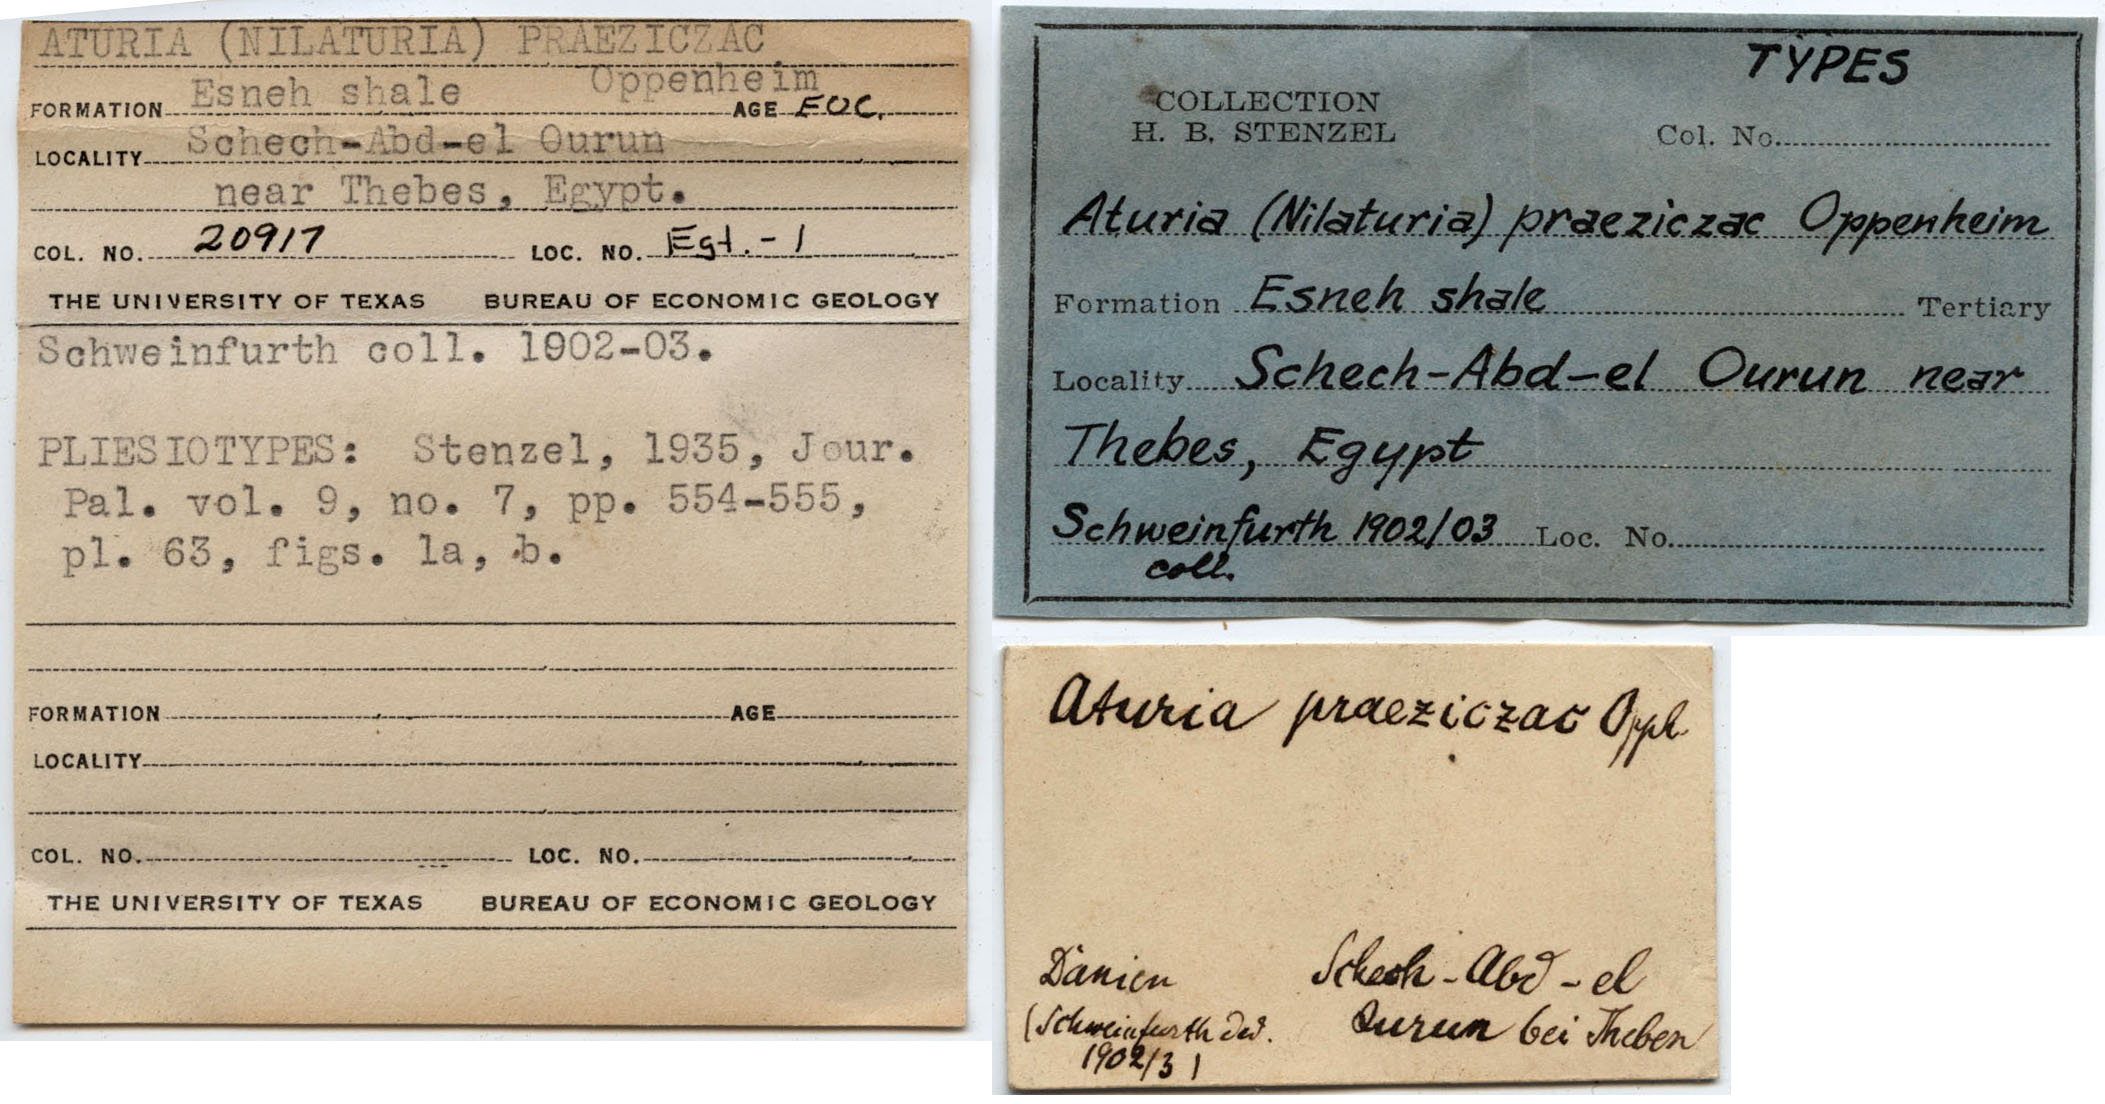 ATURIA (NILATURIA) PRAEZICZAC
Oppenheim
FORMATION Esneh shale AGE EOC.
LOCALITY Schech-Abd-el Ourun
near Thebes, Egypt.
COL. NO. 20917 LOC. NO. Egt.-1
THE UNIVERSITY OF TEXAS BUREAU OF ECONOMIC GEOLOGY
Schweinfurth coll. 1902-03.
PLIESIOTYPES: Stenzel, 1935, Jour.
Pal. vol. 9, no. 7, pp. 554-555,
pl. 63, figs. 1a, b.
FORMATION AGE
LOCALITY
COL. NO. LOC. NO.
THE UNIVERSITY OF TEXAS BUREAU OF ECONOMIC GEOLOGY
TYPES
COLLECTION
H. B. STENZEL Col. No.
Aturia (Nilaturia) praeziczac Oppenheim
Formation Esneh shale Tertiary
Locality Schech-Abd-el Ourun near
Thebes, Egypt
Schweinfurth 1902/03 Loc. No.
coll.
Aturia praeziczac Opph.
Dänien Schech-Abd-el
(Schweinfurth ded. Ourun bei Theben
1902/3)